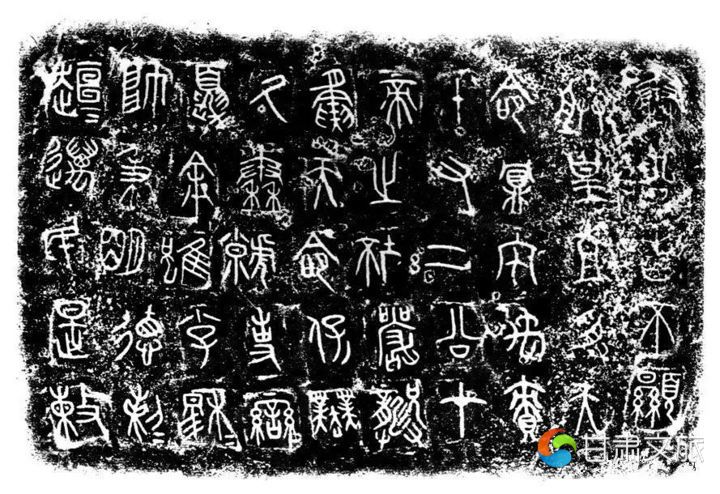 秦公曰不顯
朕皇且受天
命鼏宅禹責
十又二公才
帝之坏嚴龏
夤天命保業
氒秦虩事蠻
夏余雖小子穆=
帥秉明德剌=
𧻚=萬民是敕
甘肃文旅